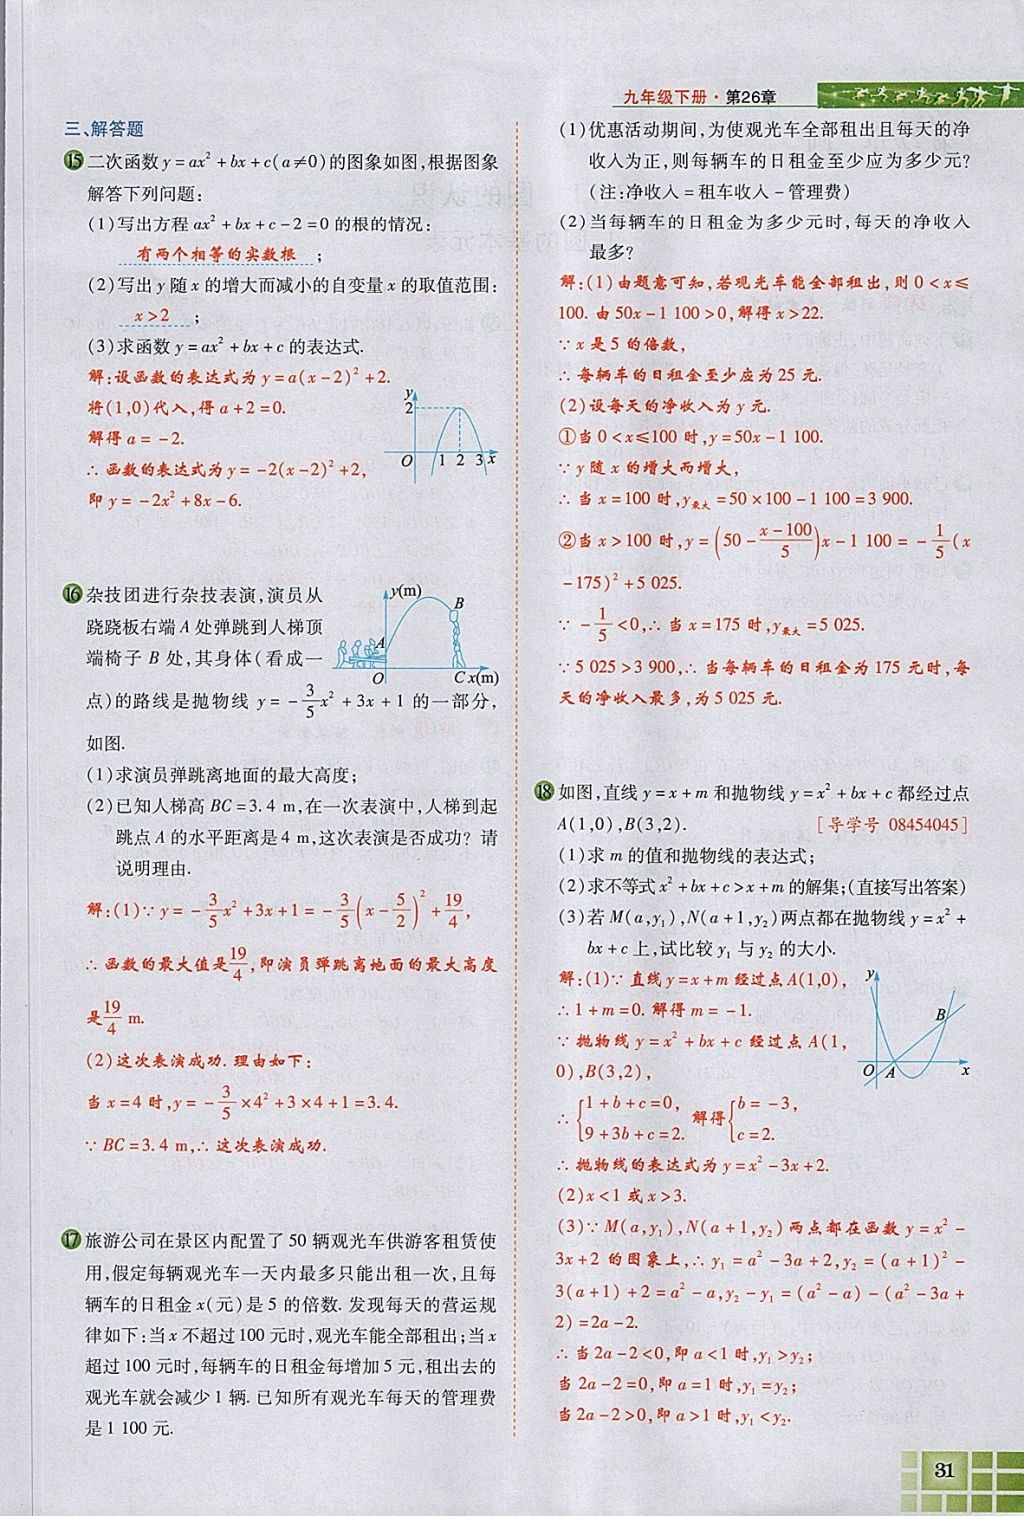 九年级下册·第26章
三、解答题
15 二次函数y=ax²+bx+c(a≠0)的图象如图,根据图象
解答下列问题:
(1)写出方程ax²+bx+c-2=0的根的情况:
有两个相等的实数根;
(2)写出y随x的增大而减小的自变量x的取值范围:
x>2;
(3)求函数y=ax²+bx+c的表达式.
解:设函数的表达式为y=a(x-2)²+2.
将(1,0)代入,得a+2=0.
解得a=-2.
∴函数的表达式为y=-2(x-2)²+2,
即y=-2x²+8x-6.
y
2
O 1 2 3 x
16 杂技团进行杂技表演,演员从
跷跷板右端A处弹跳到人梯顶
端椅子B处,其身体(看成一
点)的路线是抛物线y=-3/5x²+3x+1的一部分,
如图.
y(m)
B
A
O C x(m)
(1)求演员弹跳离地面的最大高度;
(2)已知人梯高BC=3.4 m,在一次表演中,人梯到起
跳点A的水平距离是4 m,这次表演是否成功?请
说明理由.
解:(1)∵y=-3/5x²+3x+1=-3/5(x-5/2)²+19/4,
∴函数的最大值是19/4,即演员弹跳离地面的最大高度
是19/4 m.
(2)这次表演成功.理由如下:
当x=4时,y=-3/5×4²+3×4+1=3.4.
∵BC=3.4 m,∴这次表演成功.
17 旅游公司在景区内配置了50辆观光车供游客租赁使
用,假定每辆观光车一天内最多只能出租一次,且每
辆车的日租金x(元)是5的倍数.发现每天的营运规
律如下:当x不超过100元时,观光车能全部租出;当x
超过100元时,每辆车的日租金每增加5元,租出去的
观光车就会减少1辆.已知所有观光车每天的管理费
是1 100元.
(1)优惠活动期间,为使观光车全部租出且每天的净
收入为正,则每辆车的日租金至少应为多少元?
(注:净收入=租车收入-管理费)
(2)当每辆车的日租金为多少元时,每天的净收入
最多?
解:(1)由题意可知,若观光车能全部租出,则0<x≤
100.由50x-1 100>0,解得x>22.
∵x是5的倍数,
∴每辆车的日租金至少应为25元.
(2)设每天的净收入为y元.
①当0<x≤100时,y=50x-1 100.
∵y随x的增大而增大,
∴当x=100时,y最大=50×100-1 100=3 900.
②当x>100时,y=(50-(x-100)/5)x-1 100=-1/5(x
-175)²+5 025.
∵-1/5<0,∴当x=175时,y最大=5 025.
∵5 025>3 900,∴当每辆车的日租金为175元时,每
天的净收入最多,为5 025元.
18 如图,直线y=x+m和抛物线y=x²+bx+c都经过点
A(1,0),B(3,2). [导学号 08454045]
(1)求m的值和抛物线的表达式;
(2)求不等式x²+bx+c>x+m的解集;(直接写出答案)
(3)若M(a,y₁),N(a+1,y₂)两点都在抛物线y=x²+
bx+c上,试比较y₁与y₂的大小.
解:(1)∵直线y=x+m经过点A(1,0),
∴1+m=0.解得m=-1.
∵抛物线y=x²+bx+c经过点A(1,
0),B(3,2),
∴{1+b+c=0, 9+3b+c=2. 解得{b=-3, c=2.
∴抛物线的表达式为y=x²-3x+2.
y
B
O A x
(2)x<1或x>3.
(3)∵M(a,y₁),N(a+1,y₂)两点都在函数y=x²-
3x+2的图象上,∴y₁=a²-3a+2,y₂=(a+1)²-
3(a+1)+2=a²-a,y₂-y₁=(a²-a)-(a²-3a+
2)=2a-2.
∴当2a-2<0,即a<1时,y₁>y₂;
当2a-2=0,即a=1时,y₁=y₂;
当2a-2>0,即a>1时,y₁<y₂.
31